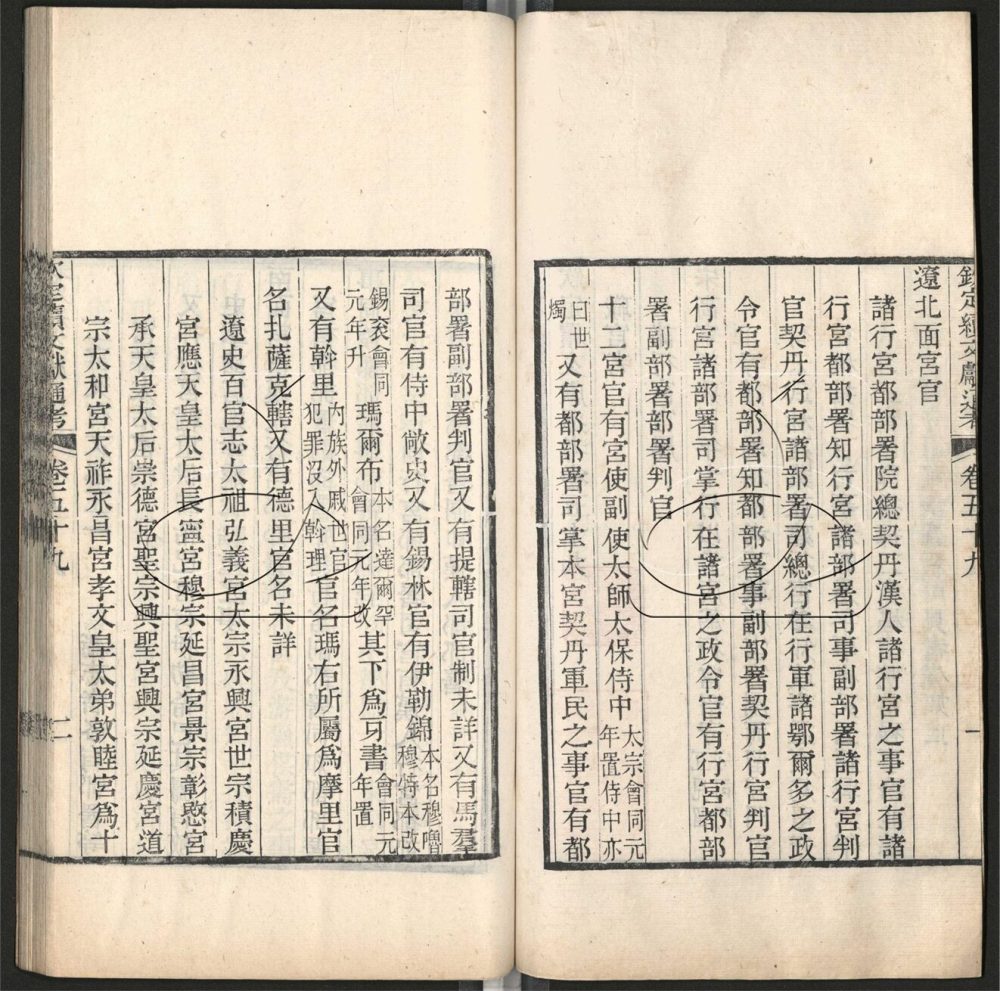 欽定續文獻通考 卷五十九 一
遼北面宮官
諸行宮都部署院總契丹漢人諸行宮之事官有諸
行宮都部署知行宮諸部署司事副部署諸行宮判
官契丹行宮諸部署司總行在行軍諸鄂爾多之政
令官有都部署知都部署事副部署契丹行宮判官
行宮諸部署司掌行在諸宮之政令官有行宮都部
署副部署部署判官
十二宮官有宮使副使太師太保侍中太宗會同元年置侍中亦
曰世燭又有都部署司掌本宮契丹軍民之事官有都
部署副部署判官又有提轄司官制未詳又有馬羣
司官有侍中敞史又有錫林官有伊勒錦本名穆嚕穆特本改
錫衮會同元年升瑪爾布本名達爾罕會同元年改其下爲牙書會同元年置
又有斡里內族外戚世官犯罪沒入斡理官名瑪右所屬爲摩里官
名扎薩克轄又有德里官名未詳
遼史百官志太祖弘義宮太宗永興宮世宗積慶
宮應天皇太后長寧宮穆宗延昌宮景宗彰愍宮
承天皇太后崇德宮聖宗興聖宮興宗延慶宮道
宗太和宮天祚永昌宮孝文皇太弟敦睦宮爲十
欽定續文獻通考 卷五十九 二